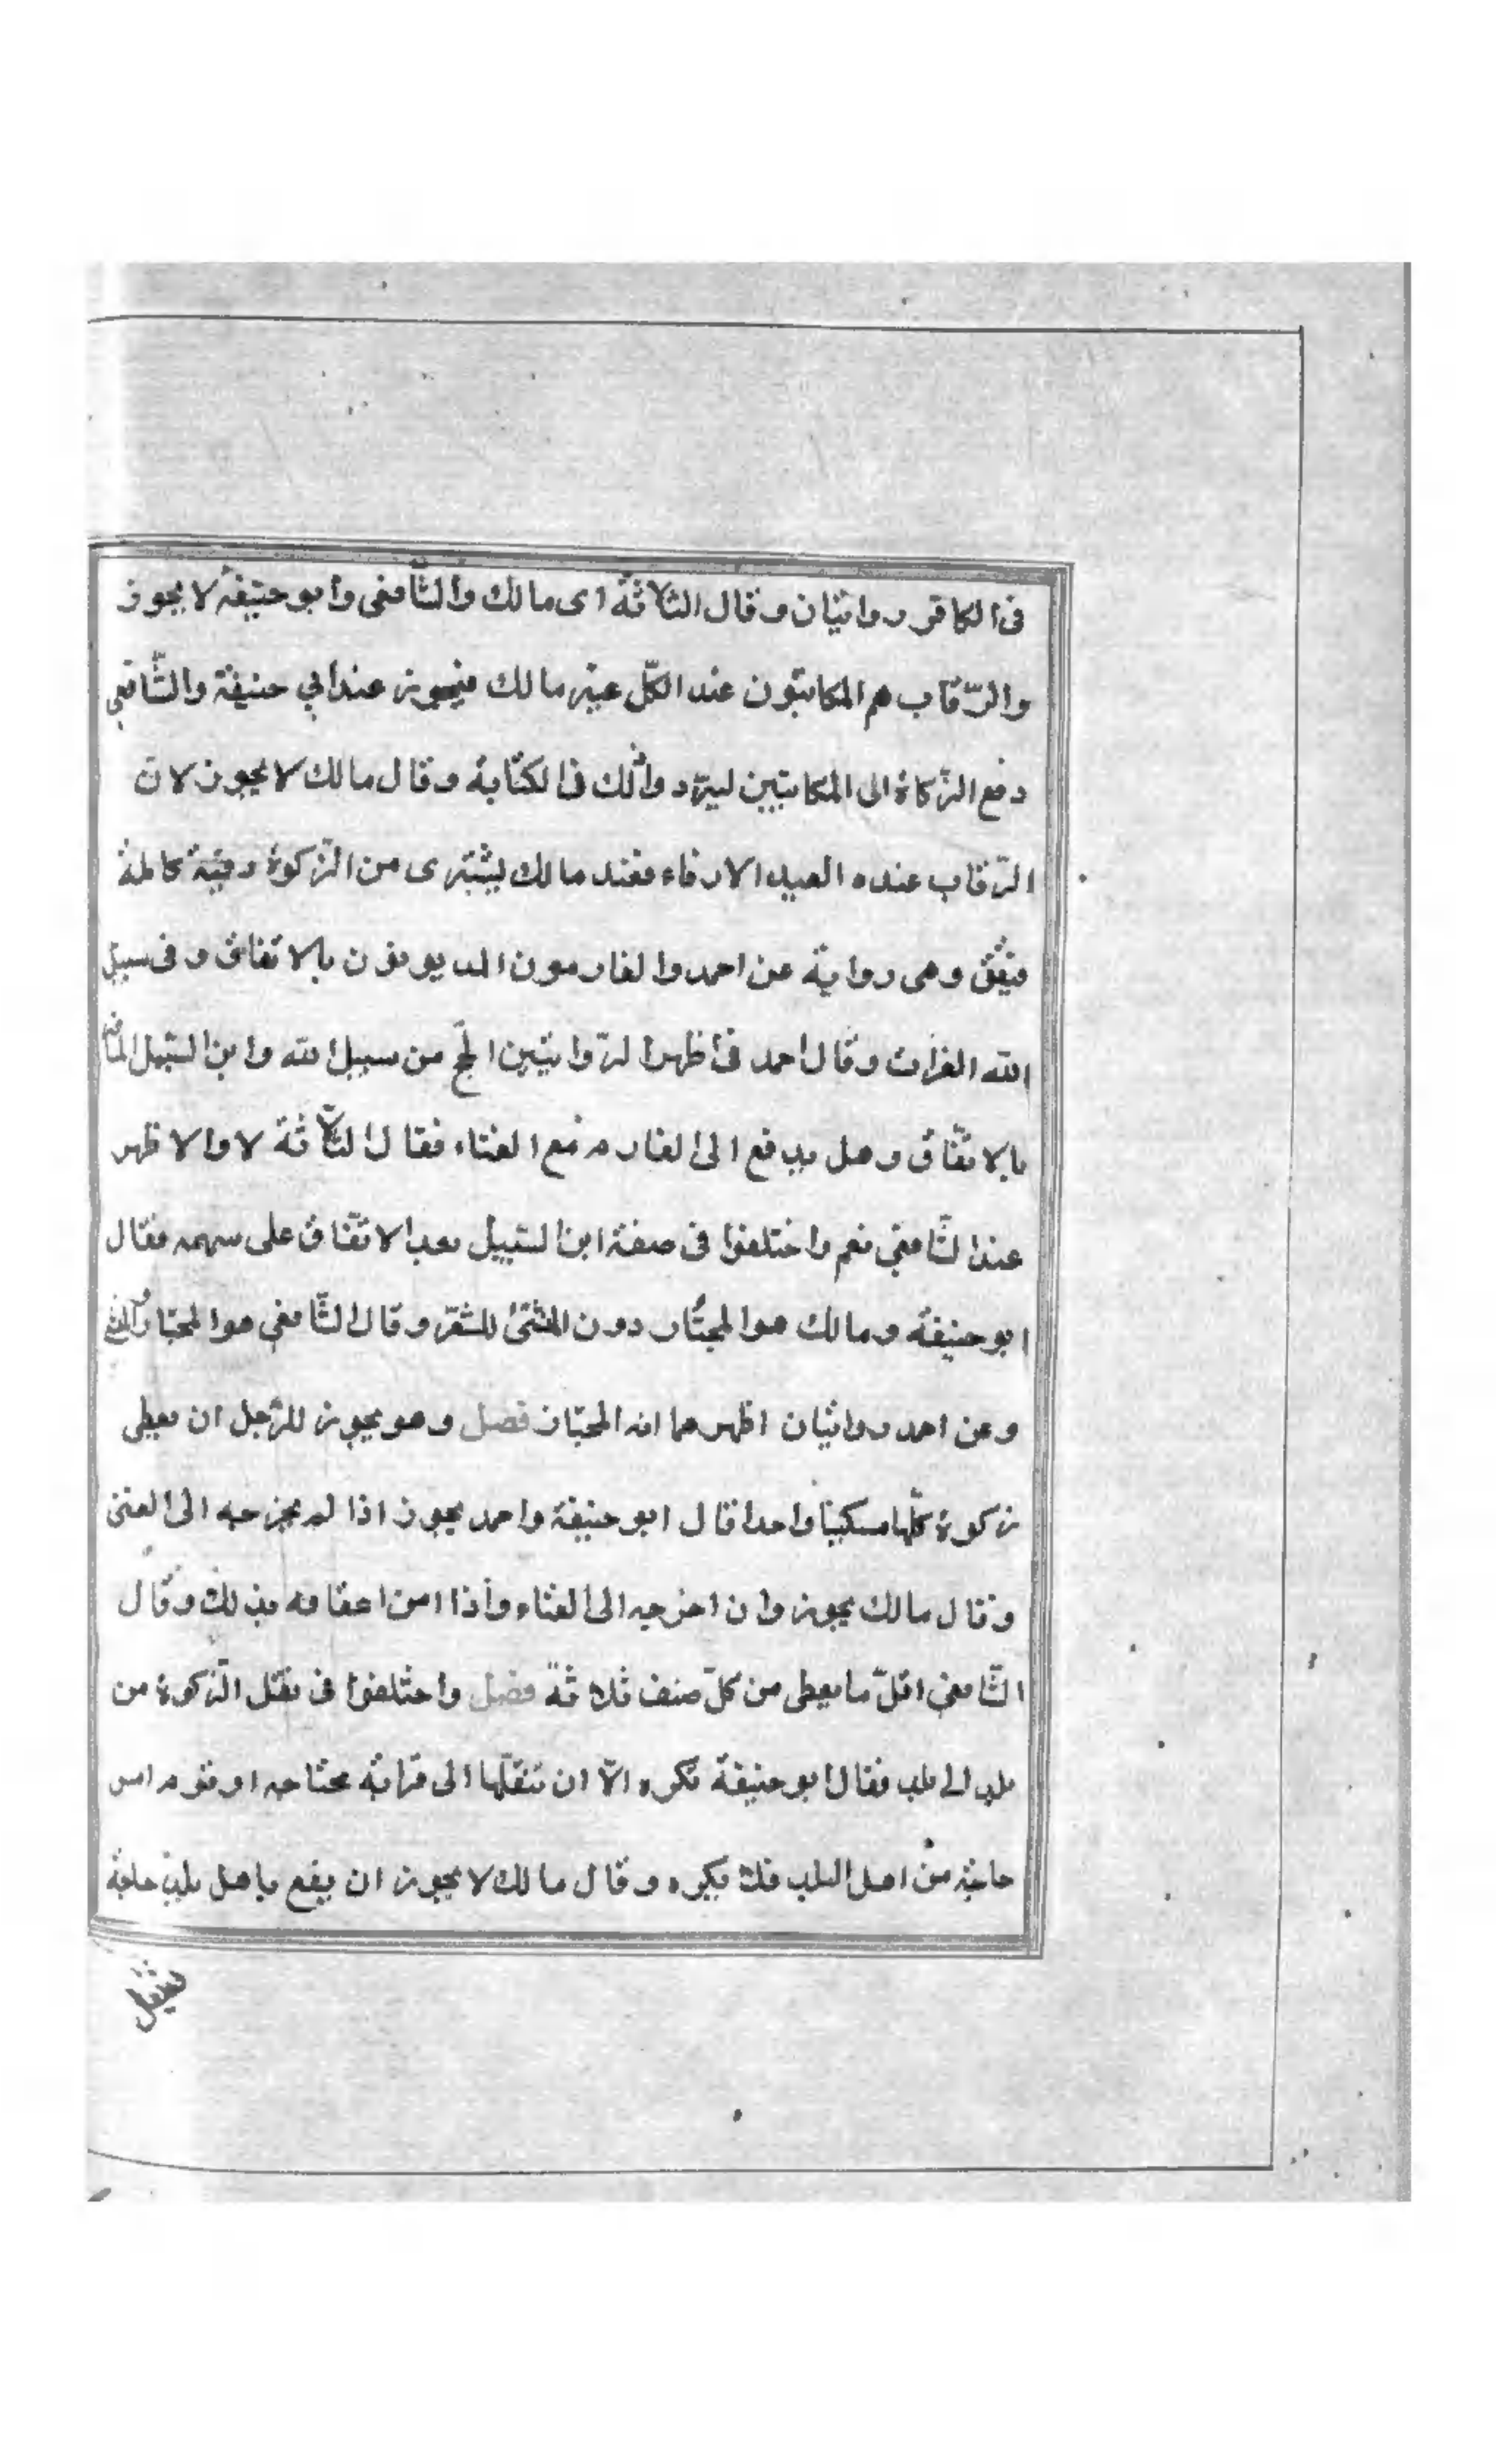 فى الكافر روايتان وقال الثلاثة اى مالك والشافعى وابو حنيفة لا يجوز
والرّقاب هم المكاتبون عند الكلّ غير مالك فيجوز عند ابي حنيفة والشّافعي
دفع الزّكاة الى المكاتبين ليؤد وا ذلك فى الكتابة وقال مالك لا يجوز لان
الرّقاب عنده العبيد الارقاء فعند مالك يشترى من الزّكوة رقبة كاملة
فيعتق وهى رواية عن احمد والغارمون المديونون بالاتفاق وفى سبيل
الله الغزات وقال احمد فى اظهر الرّوايتين الحجّ من سبيل الله وابن السّبيل المسافر
بالاتّفاق وهل يدفع الى الغارم مع الغناء فقال الثّلاثة لا والاظهر
عند الشّافعي نعم واختلفوا فى صفة ابن السّبيل بعد الاتّفاق على سهمه فقال
ابو حنيفة ومالك هو المجتاز دون المنشئ للسّفر وقال الشّافعى هو المجتاز والمنشئ
وعن احمد روايتان اظهرهما انه المجتاز فصل وهو يجوز للرّجل ان يعطى
زكوة كلّها مسكينا واحدا قال ابو حنيفة واحمد يجوز اذا لم يخرجه الى الغنى
وقال مالك يجوز وان اخرجه الى الغناء واذا امن اعفافه بذلك وقال
الشّافعي اقلّ ما يعطى من كلّ صنف ثلاثة فصل واختلفوا فى نقل الزّكوة من
بلد الى بلد فقال ابو حنيفة تكره الاّ ان تنقلها الى قرابة محتاجه او قوم امس
حاجة من اهل البلد فلا يكره وقال مالك لا يجوز ان يقع باهل بلد حاجة
فينقل